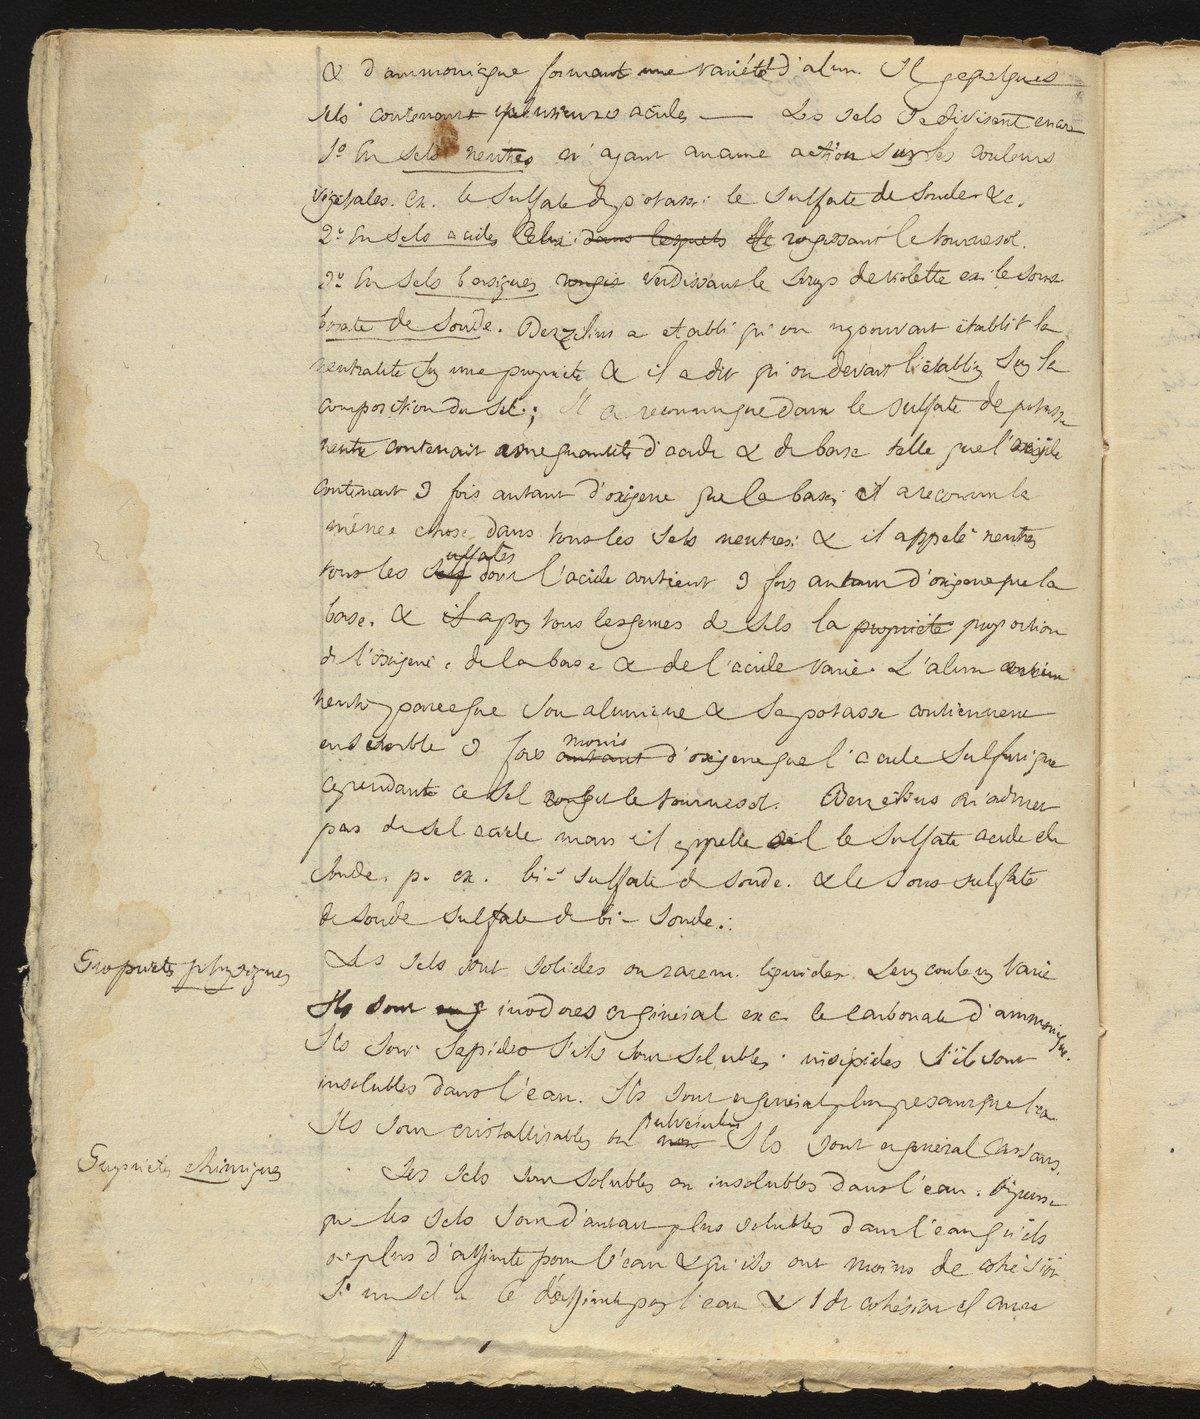 & d'ammoniaque formant une variété d'alun. Il y a quelques
sels contenant plusieurs acides — Les sels se divisent encore
1° En sels neutres n'ayant aucune action sur les couleurs
végétales. Ex. le sulfate de potasse le sulfate de soude &c.
2° En sels acides Celui dans lesquels Ile rougissant le tournesol.
3° En sels basiques rougis verdissant le sirop de violette ex. le sous
borate de soude. Berzelius a etabli qu'on ne pouvait établir la
neutralité sur une propriété & il a dit qu'on devait l'établir sur la
composition du sel; Il a reconnu que dans le sulfate de potasse
neutre contenait une quantité d'acide & de base telle que l'acide
contenait 3 fois autant d'oxigene que la base; il a reconnu la
même chose dans tous les sels neutres: & il appelé neutres
tous les sels ulfates dont l'acide contient 3 fois autant d'oxigene que la
base. & il a pour tous les genres de sels la propriété proportion
de l'oxigene de la base & de l'acide varie. L'alun
neutre parceque son alumine & sa potasse contiennent
ensemble 3 fois autant moins d'oxigene que l'acide sulfurique
cependant ce sel rougit le tournesol. Berzelius n'admet
pas de sel acide mais il appelle sel le sulfate acide de
soude. p. ex. bi-sulfate de soude. & le sous sulfate
de soude sulfate de bi-soude.
Propriétés physiques
Les sels sont solides ou rarem. liquides. Leur couleur varie
Ils sont en g inodores en général exc. le carbonate d'ammoniaque.
Ils sont sapides s'ils sont solubles; insipides s'ils sont
insolubles dans l'eau. Ils sont en général plus pesant que l'eau
Ils sont cristallisables ou non pulvérulens Ils sont en général cassans.
Propriétés chimiques
Les sels sont solubles ou insolubles dans l'eau.
que les sels sont d'autant plus solubles dans l'eau qu'ils
ont plus d'affinité pour l'eau & qu'ils ont moins de cohésion
Si un sel a 6 d'affinité pour l'eau & 1 de cohésion il aura